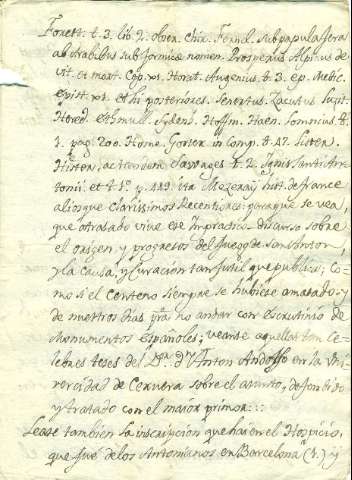 Forest. t. 3. lib. 2. obser. chir. Fernel. sub papula fera
ab Arabibus sub formicæ nomen. Prosperus Alpinus de
vit. et mort. Cap. Horat. Augenius t. 3. ep. Medic.
epist. et hi posteriores. Senertus. Zacutus Lusit.
Hored. ethmull. Sydenh. Hoffm. Haen. Somnius t.
1. pag. 200. Home, Gorter in Comp. t. 47. Listen.
Histen. Sauvages t. 2. Ignis Santi An-
tonii. et t. 1º. p. 449. ita Mezeray hist. de france
aliosque clarissimos Recentiores: para que se vea,
que atrasado vive ese Impractico discurso sobre
el origen, y progresos del fuego de San Anton,
y la Causa, y Curación tan futil que publicó; Co-
mo si el Centeno siempre se hubiese amasado y
de nuestros dias pª. no andar con escrutinio de
Monumentos Españoles; veanse aquellas tan Ce-
lebres teses del Dr. Dn. Anton Andosso en la Uni-
vercidad de Cervera sobre el asunto, defendido
y tratado con el maior primor...
Lease tambien la inscripcion que hai en el Hospicio,
que fué de los Antonianos en Barcelona (1.) y